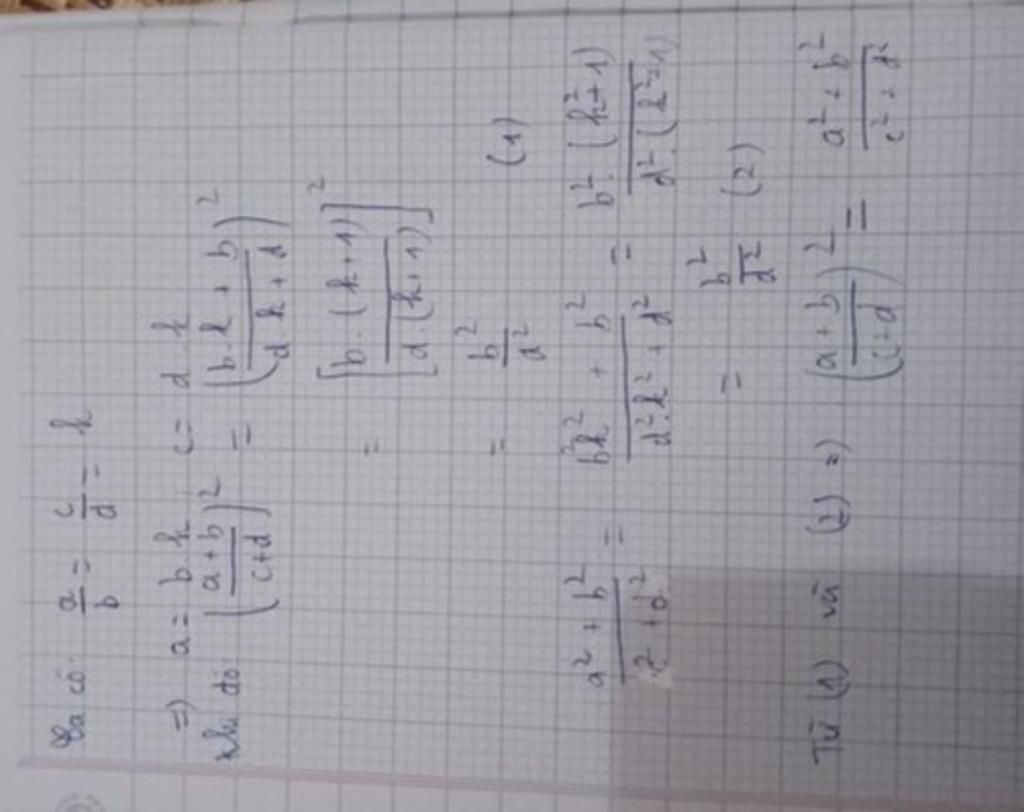 Ta có: a/b = c/d = k
=) a = b.k c = d.k
Khi đó ((a+b)/(c+d))² = ((b.k + b)/(dk + d))²
= [b.(k+1)/d.(k+1)]²
= b²/d² (1)
(a² + b²)/(c² + d²) = (b²k² + b²)/(d².k² + d²) = b².(k²+1)/d².(k²+1)
= b²/d² (2)
Từ (1) và (2) =) ((a+b)/(c+d))² = (a² + b²)/(c² + d²)